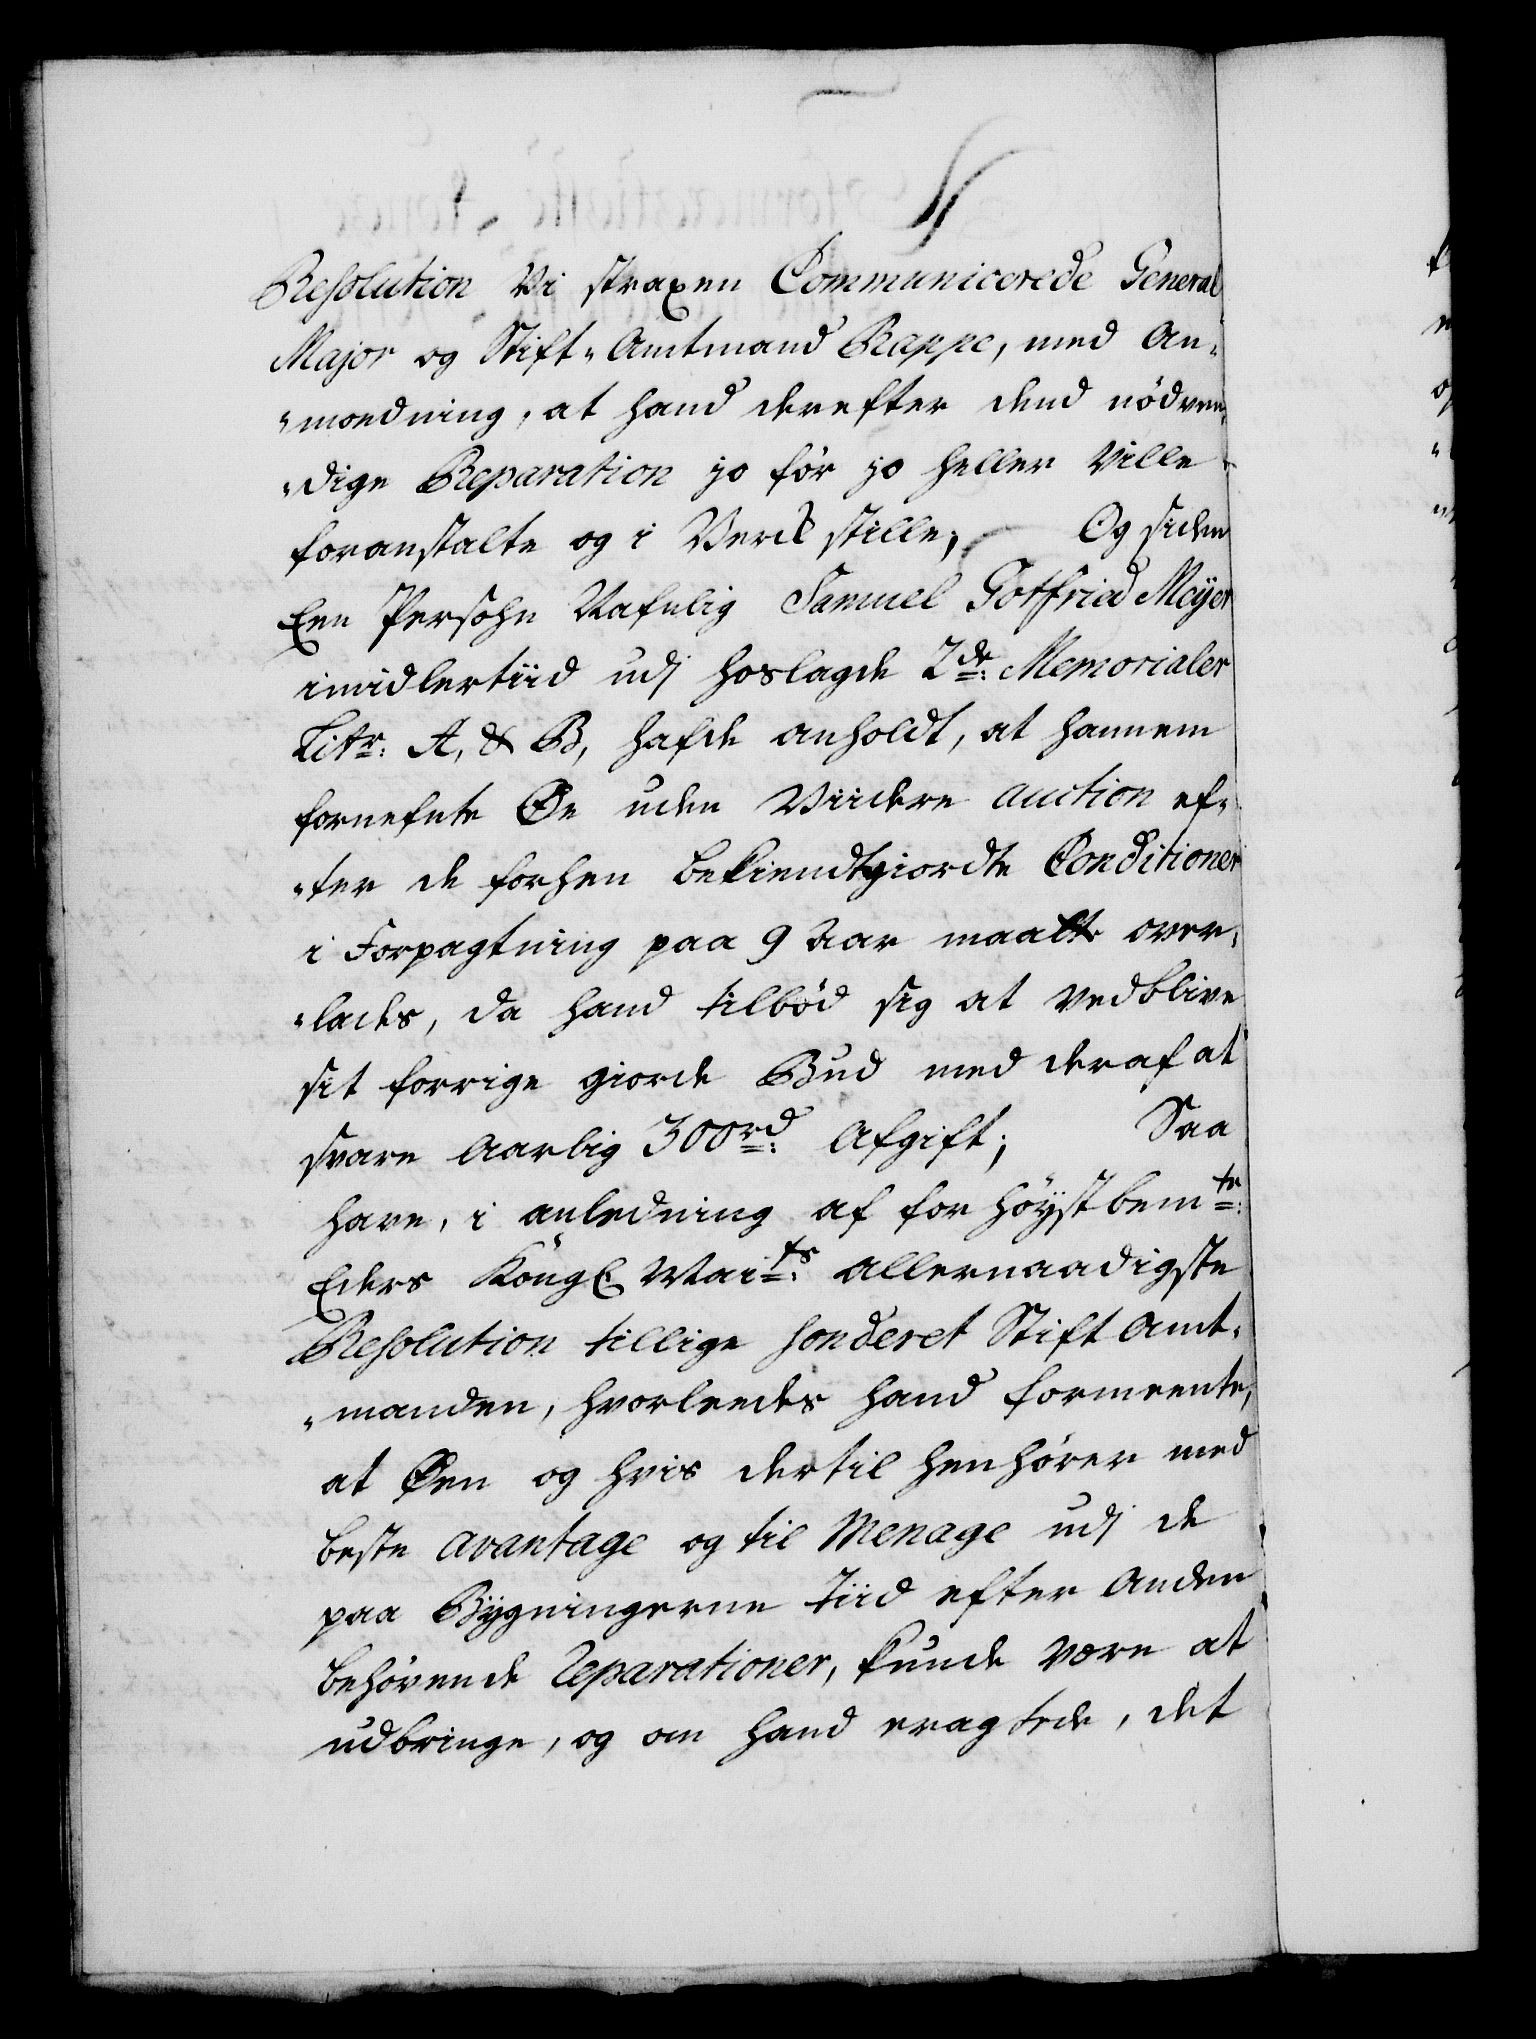 Resolution Vi straxen Communicerede General
Major og Stift-Amtmand Rappe, med An-
-moedning, at hand derefter dend nödven-
-dige Reparation jo för jo heller ville
foranstalte og i Verck stille; Og siden
Een Persohn Nafnlig Samuel Gotfried Meyer
imidlertiid udj hoslagde 2de: Memorialer
Litr: A, & B, hafde anholdt, at hannem
fornefnte Øe uden Viidere auction ef-
-ter de forhen bekiendtgiordte Conditioner
i Forpagtning paa 9 Aar maatte over-
-lades, da hand tilbød sig at vedblive
sit forrige giorde Bud med deraf at
svare Aarlig 300rd: Afgift; Saa
have, i anledning af for höystbemte:
Eders Kongl Maits: allernaadigste
Resolution tillige Sonderet Stift Amt-
-manden, hvorleedes hand formeente,
at Øen og hvis dertil henhörer med
beste avantage og til Menage udj de
paa Bygningerne tiid efter anden
behövende Reparationer, kunde være at
udbringe, og om hand eragtede, det